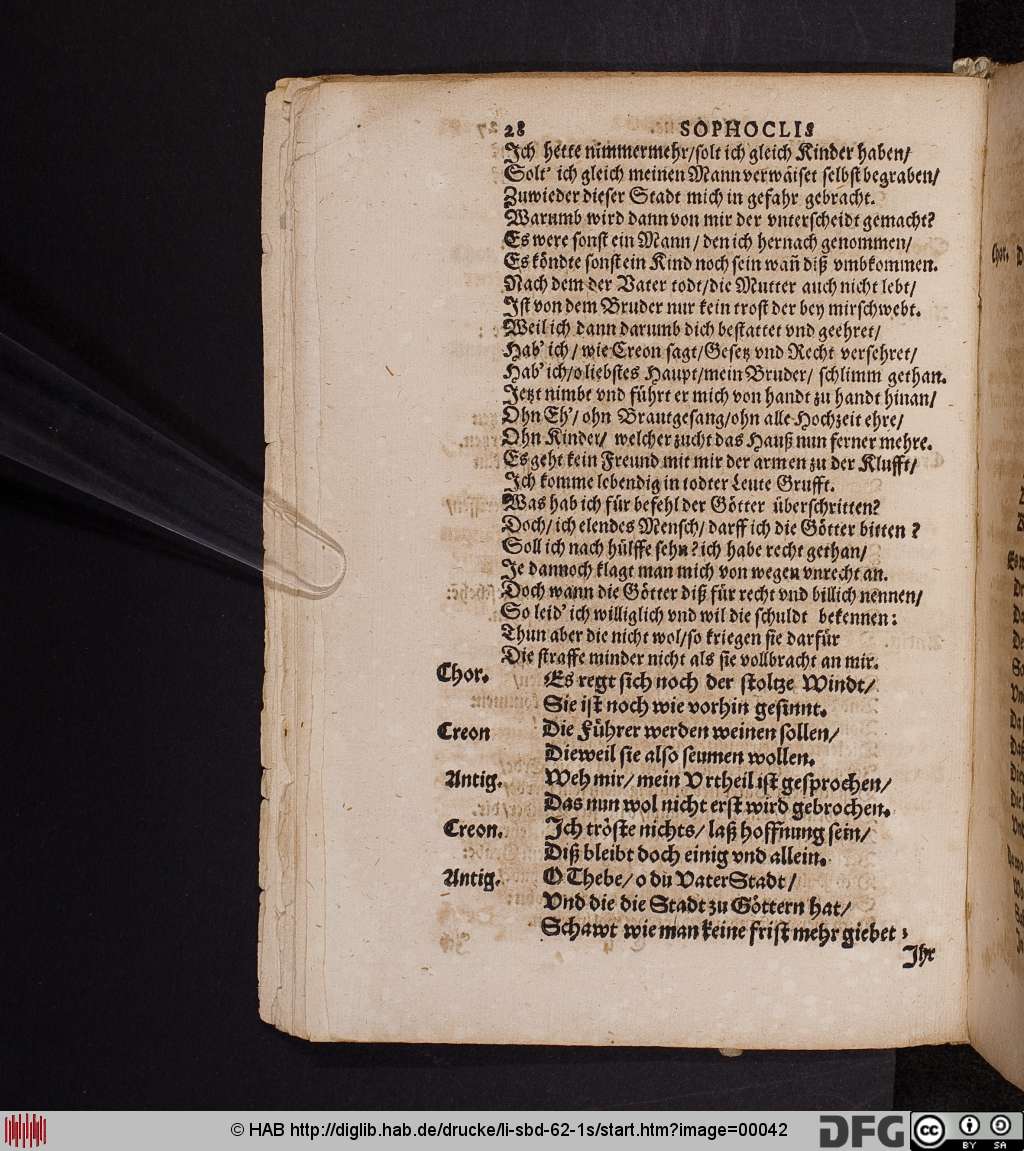 28 SOPHOCLIS
Ich hette nimmermehr/solt ich gleich Kinder haben/
Solt' ich gleich meinen Mann verwäiset selbst begraben/
Zuwieder dieser Stadt mich in gefahr gebracht.
Warumb wird dann von mir der vnterscheidt gemacht?
Es were sonst ein Mann/ den ich hernach genommen/
Es köndte sonst ein Kind noch sein wañ diß vmbkommen.
Nach dem der Vater todt/die Mutter auch nicht lebt/
Ist von dem Bruder nur kein trost der bey mir schwebt.
Weil ich dann darumb dich bestattet vnd geehret/
Hab' ich/ wie Creon sagt/Gesetz vnd Recht versehret/
Hab' ich/o liebstes Haupt/mein Bruder/ schlimm gethan.
Jetzt nimbt vnd führt er mich von handt zu handt hinan/
Ohn Eh'/ ohn Brautgesang/ohn alle Hochzeit ehre/
Ohn Kinder/ welcher zucht das Hauß nun ferner mehre.
Es geht kein Freund mit mir der armen zu der Klufft/
Ich komme lebendig in todter Leute Grufft.
Was hab ich für befehl der Götter überschritten?
Doch/ ich elendes Mensch/ darff ich die Götter bitten?
Soll ich nach hülffe sehn? ich habe recht gethan/
Je dannoch klagt man mich von wegen vnrecht an.
Doch wann die Götter diß für recht vnd billich nennen/
So leid' ich williglich vnd wil die schuldt bekennen:
Thun aber die nicht wol/so kriegen sie darfür
Die straffe minder nicht als sie vollbracht an mir.
Chor. Es regt sich noch der stoltze Windt/
Sie ist noch wie vorhin gesinnt.
Creon Die Führer werden weinen sollen/
Dieweil sie also seumen wollen.
Antig. Weh mir/ mein Vrtheil ist gesprochen/
Das nun wol nicht erst wird gebrochen.
Creon. Ich tröste nichts/ laß hoffnung sein/
Diß bleibt doch einig vnd allein.
Antig. O Thebe/ o du VaterStadt/
Vnd die die Stadt zu Göttern hat/
Schawt wie man keine frist mehr giebet;
Ihr
© HAB http://diglib.hab.de/drucke/li-sbd-62-1s/start.htm?image=00042
DFG
cc BY SA